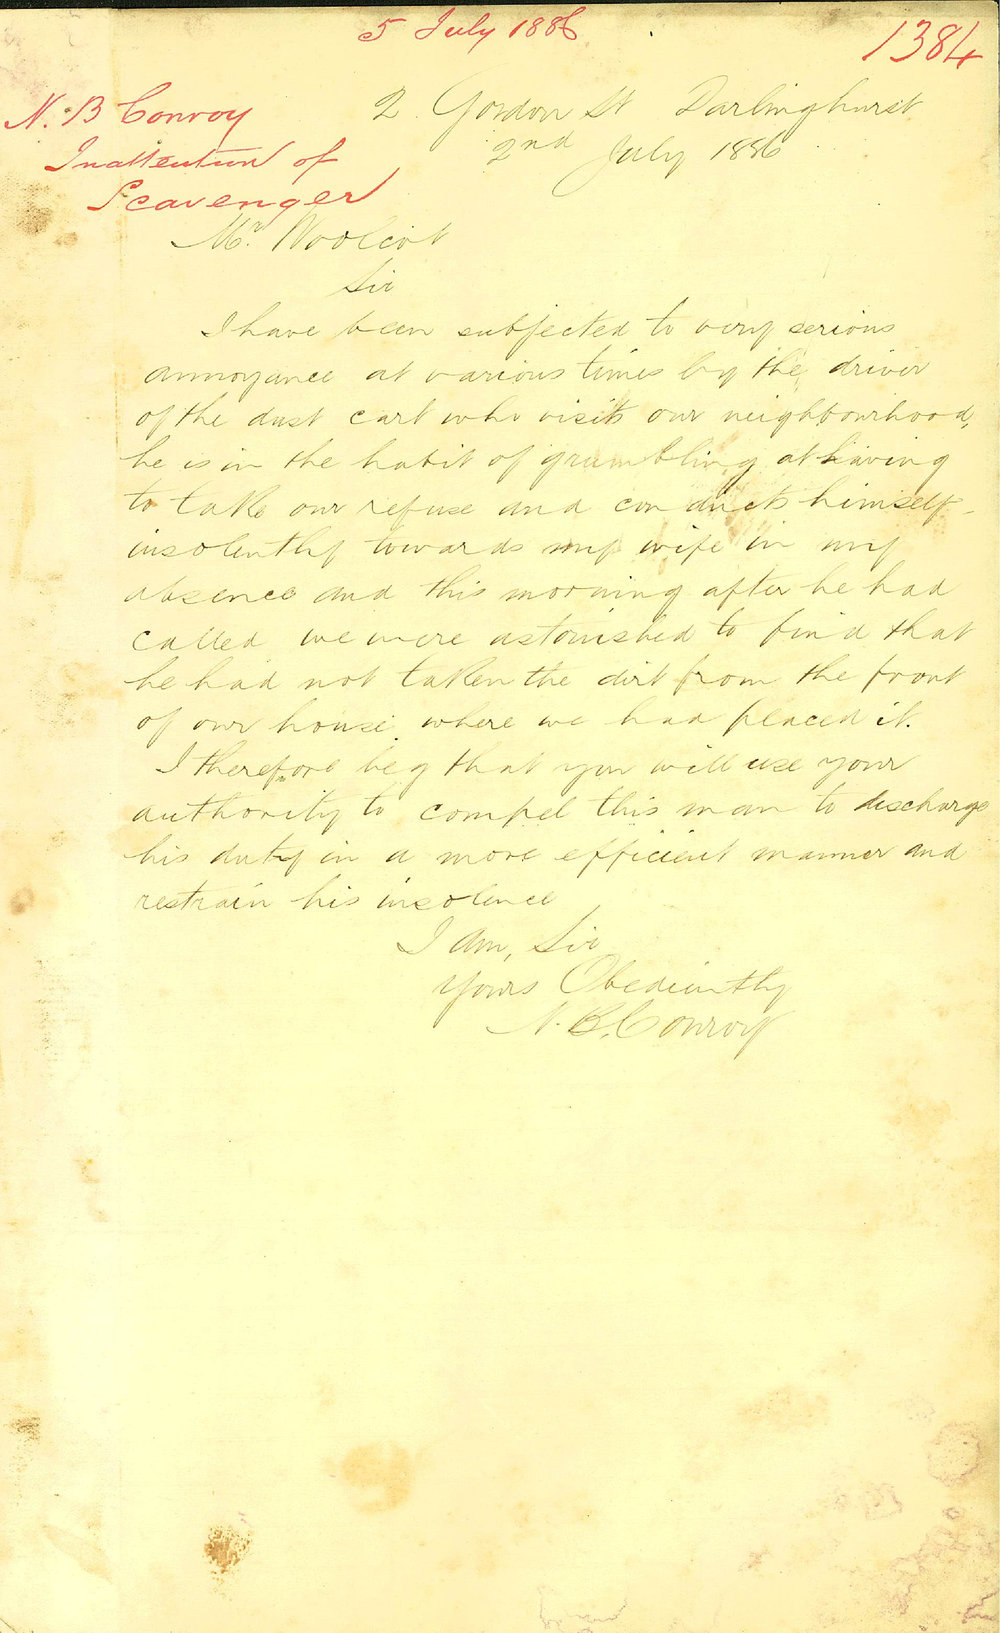 5 July 1886
1384
N. B Conroy
Inattention of
Scavenger
2 Gordon St Darlinghurst
2nd July 1886
Mr. Woolcot
Sir
I have been subjected to very serious
annoyance at various times by the driver
of the dust cart who visits our neighbourhood,
he is in the habit of grumbling at having
to take our refuse and conducts himself
insolently towards my wife in my
absence and this morning after he had
called we were astonished to find that
he had not taken the dirt from the front
of our house where we had placed it.
I therefore beg that you will use your
authority to compel this man to discharge
his duty in a more efficient manner and
restrain his insolence
I am, Sir
Yours Obediently
N. B. Conroy